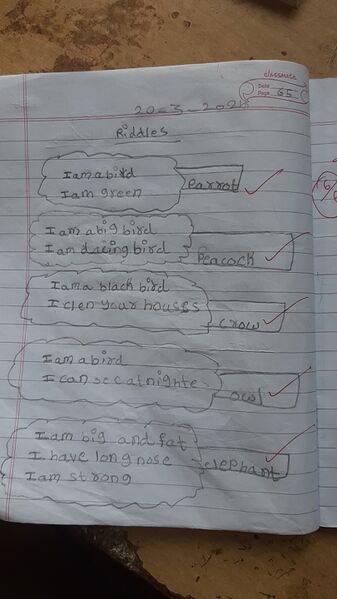 classmate
Date
Page 65
20-3-202
Riddles
I am a bird
I am green
Parrot
I am a big bird
I am dacing bird
Peacock
I am a black bird
I clen your houses
crow
I am a bird
I can see at nighte
owl
I am big and fat
I have long nose
I am strong
elephant